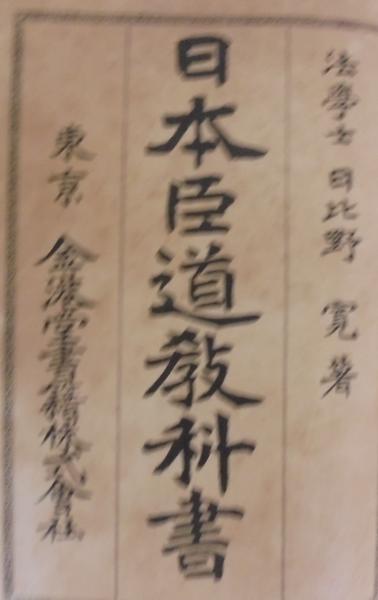 法學士 日比野 寬著
日本臣道敎科書
東京 金港堂書籍株式會社